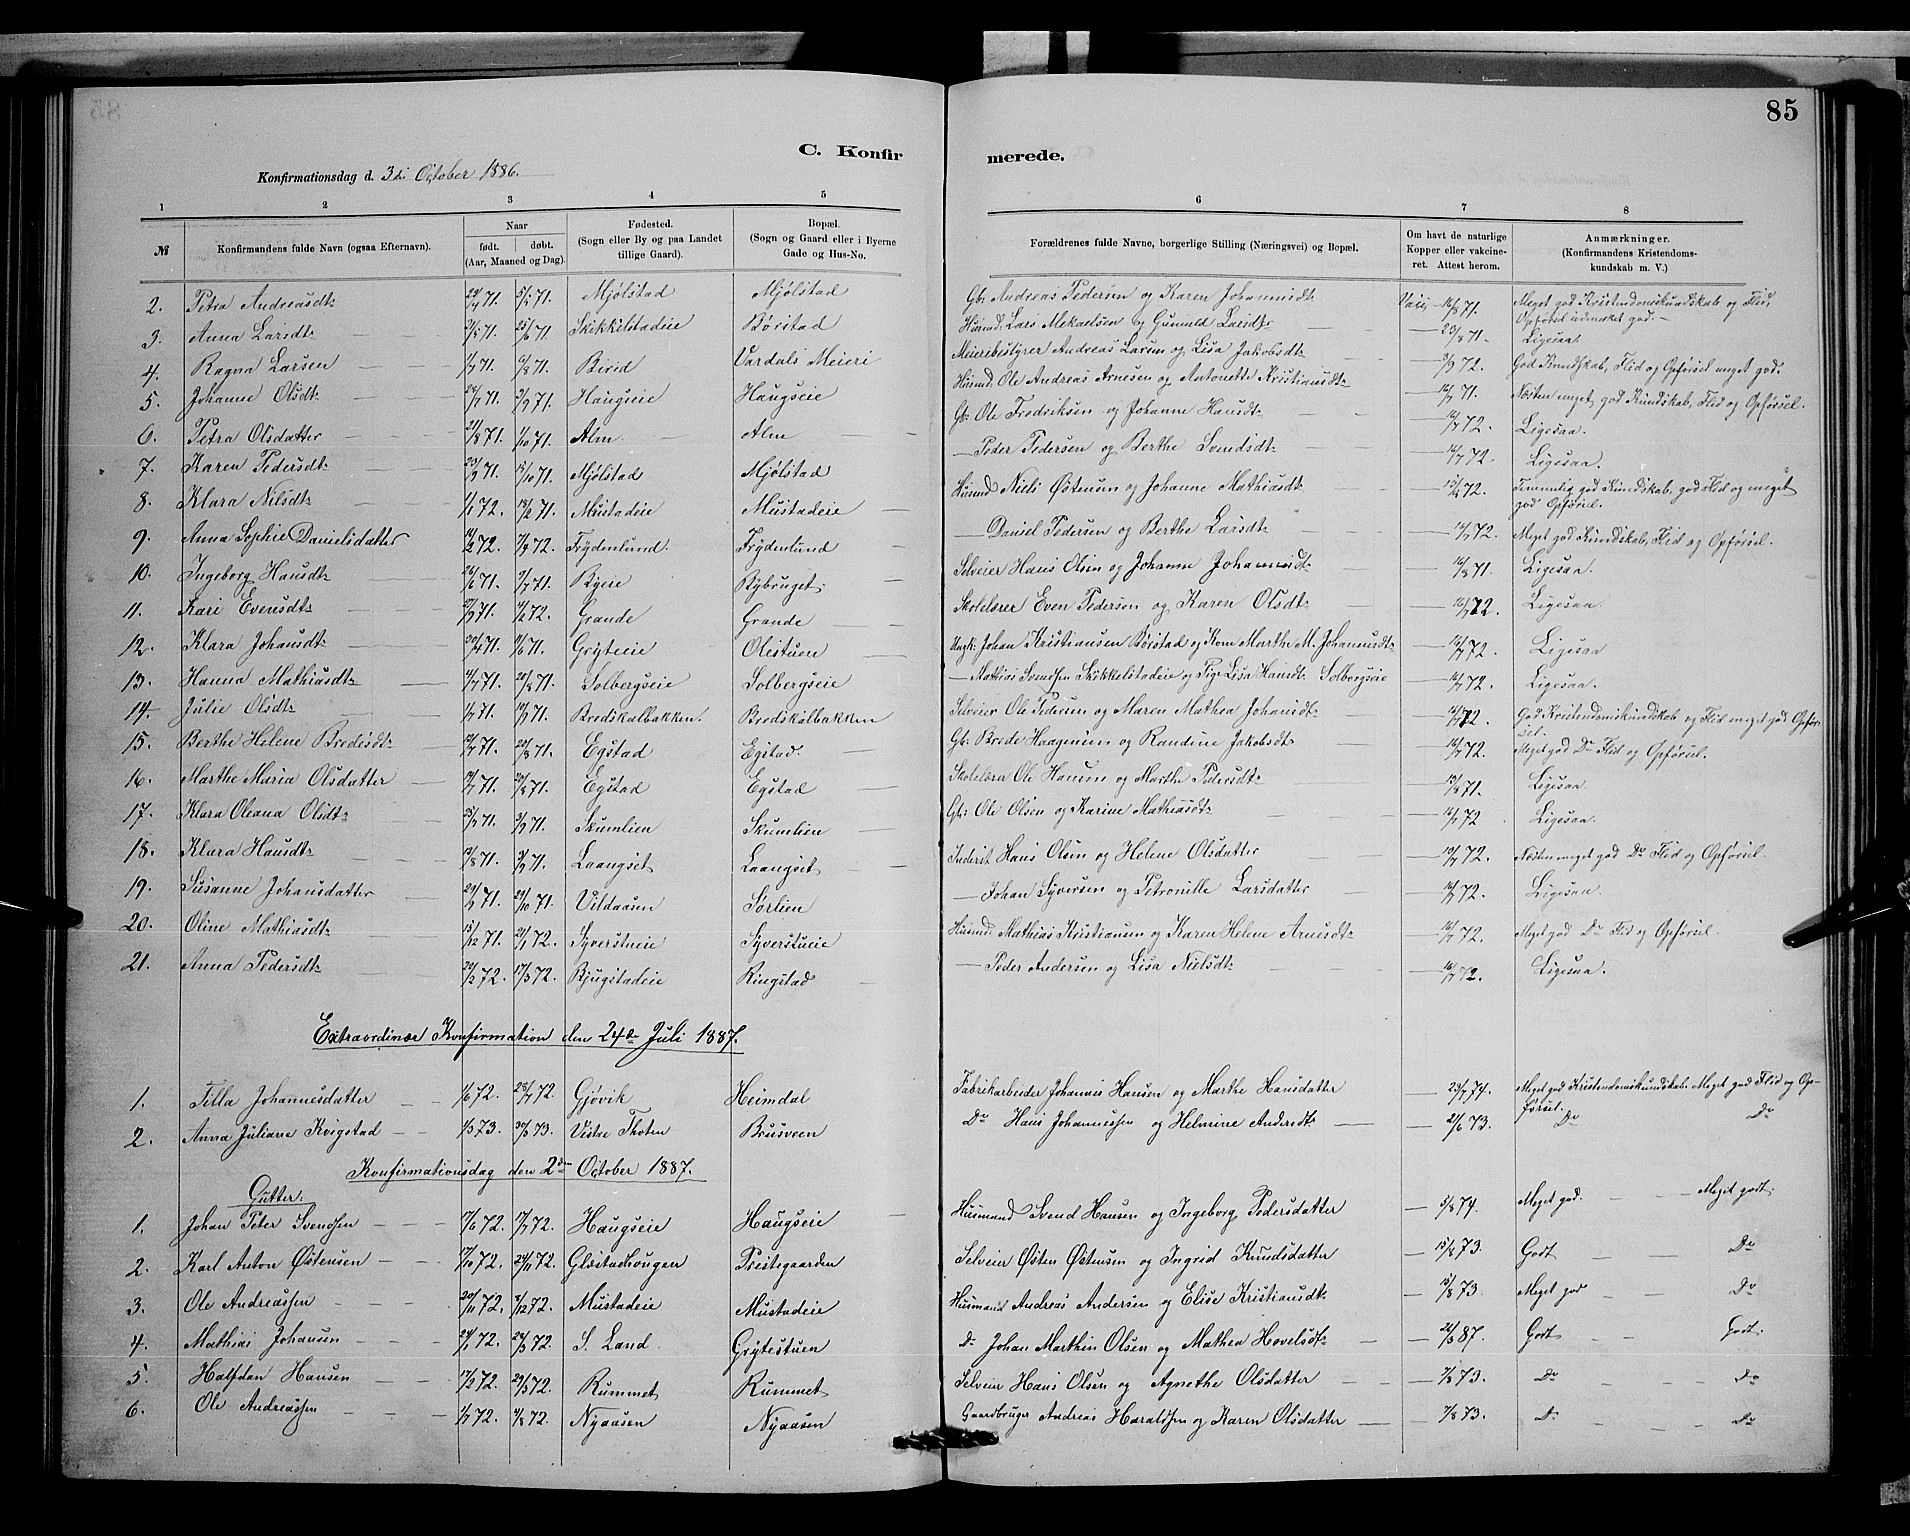 85
C. Konfirmerede.
Konfirmationsdag d. 3die October 1886.
1 2 3 4 5 6 7 8
№ Konfirmandens fulde Navn (ogsaa Efternavn). Naar født. døbt. (Aar, Maaned og Dag). Fødested. (Sogn eller By og paa Landet tillige Gaard). Bopæl. (Sogn og Gaard eller i Byerne Gade og Hus-No. Forældrenes fulde Navne, borgerlige Stilling (Næringsvei) og Bopæl. Om havt de naturlige Kopper eller vakcineret. Attest herom. Anmærkninger. (Konfirmandens Kristendomskundskab m. V.)
2. Petra Andreasdt: 71. 71. Mjølstad Mjølstad Gb: Andreas Pedersen og Karen Johannisdt 16/8 71. Meget god Kristendomskundskab og Flid, Opførsel udmerket god.
3. Anna Larsdt: 71. 25/6 71. Skikkelstadeie Børstad Husmd: Lars Mekaelsen og Gunild Larsdt: 23/8 71. Ligesaa.
4. Ragna Larsen 1/7 71. 6/8 71. Birid Vardals Meieri Meieribestyrer Andreas Larsen og Lisa Jakobsdt 3/9 72. God Kundskab, Flid og Opførsel meget god.
5. Johanne Olsdt: 71. 3/9 71. Haugseie Haugseie Husmd: Ole Andreas Arnesen og Antonette Kristiansdt: 71. Næsten meget god Kundskab, Flid og Opførsel.
6. Petra Olsdatter 21/8 71. 1/10 71. Alm Alm Gb: Ole Fredriksen og Johanne Hansdt: 72. Ligesaa.
7. Karen Pedersdt: 23/9 71. 15/10 71. Mjølstad Mjølstad — Peder Pedersen og Berthe Svendsdt: 72. Ligesaa.
8. Klara Nilsdt: 1/1 72. 71. Mustadeie Mustadeie Husmd Niels Østensen og Johanne Mathiasdt: 72. Temmelig god Kundskab, god Flid og meget god Opførsel.
9. Anna Sophie Danielsdatter 72. 72. Frydenlund. Frydenlund — Daniel Pedersen og Berthe Larsdt: 72. Meget god Kundskab, Flid og Opførsel.
10. Ingeborg Hansdt: 26/6 71. 9/7 71. Byere Bybruget. Selveier Hans Olsen og Johanne Johannesdt: 16/8 71. Ligesaa.
11. Kari Evensdt: 71. 72. Grande Grande Skolelærer Even Pedersen og Karen Olsdt: 72. Ligesaa.
12. Klara Johansdt: 71. 71. Gryteeie Olestuen Ungk: Johan Kristiansen Børstad og Kone Marthe M. Johannesdt: 72. Ligesaa
13. Hanna Mathiasdt: 71. 20/8 71. Solbergseie Solbergseie — Mathias Svendsen Skikkelstadeie og Pige Lisa Hansdt. Solbergseie 72. Ligesaa.
14. Julie Olsdt: 71. 71. Bredskalbakken. Bredskalbakken Selveier Ole Pedersen og Maren Mathea Johansdt: 72. God Kristendomskundskab og Flid meget god Opførsel.
15. Berthe Helene Bredesdt: 71. 20/8 71. Egstad Egstad Gb: Brede Haagensen og Randine Jakobsdt 72. Meget god Do Flid og Opførsel.
16. Marthe Maria Olsdatter 71. 20/8 71. Egstad Egstad Skolelærer Ole Hansen og Marthe Pedersdt: 13/8 71. Ligesaa.
17. Klara Oleana Olsdt: 25/7 71. 3/9 71. Skumlien Skumlien Gb: Ole Olsen og Karine Mathiasdt: 72 Ligesaa.
18. Klara Hansdt: 71. 71. Laangset Laangset Inderst Hans Olsen og Helene Olsdatter 72. Næsten meget god Do Flid og Opførsel.
19. Susanne Johansdatter 71. 29/10 71. Vildaasen Sørlien — Johan Syversen og Petronille Larsdatter 72. Ligesaa.
20. Oline Mathiasdt: 15/12 71. 21/1 72. Syverstueie Syverstueie Husmd: Mathias Kristiansen og Karen Helene Arnesdt: 72. Meget god Do Flid og Opførsel.
21. Anna Pedersdt: 20/2 72. 17/3 72. Bjugstadeie Ringstad — Peder Andersen og Lisa Nielsdt: 72. Ligesaa.
Extraordinær Konfirmation den 24de Juli 1887.
1. Tilla Johannesdatter 1/6 72. 28/7 72. Gjøvik Heimdal Fabrikarbeider Johannes Hansen og Marthe Hansdatter 23/7 74. Meget god Kristendomskundskab. Meget god Flid og Opførsel.
2. Anna Juliane Kvigstad 1/3 73. 30/3 73. Vestre Thoten Brusveen Do Hans Johannessen og Helmine Andersdt: 2/6 73. Do Do
Konfirmationsdag den 2den October 1887.
Gutter:
1. Johan Peter Svendsen 17/6 72. 17/7 72. Haugseie Haugseie Husmand Svend Hansen og Ingeborg Pedersdatter 5/8 74. Meget god. Meget godt.
2. Karl Anton Østensen 17/10 72. 24/11 72. Glæstadhougen Prestegaarden Selveier Østen Østensen og Ingrid Knudsdatter 15/8 73. Godt Do
3. Ole Andreassen 20/11 72. 8/12 72. Mustadeie Mustadeie Husmand Andreas Andersen og Elise Kristiansdt: 15/8 73. Meget god Do
4. Mathias Johansen 72. 24/3 72. S. Land. Grytestuen Do Johan Marthin Olsen og Mathea Hovelsdt: 87. Godt Godt.
5. Halfdan Hansen 17/2 72. 29/3 72. Rummet Rummet Selveier Hans Olsen og Agnethe Olsdatter 7/8 73. Do Do
6. Ole Andreassen 1/7 72. 4/8 72. Nyaasen Nyaasen Gaardbruger Andreas Haraldsen og Karen Olsdatter 7/8 73. Do Do